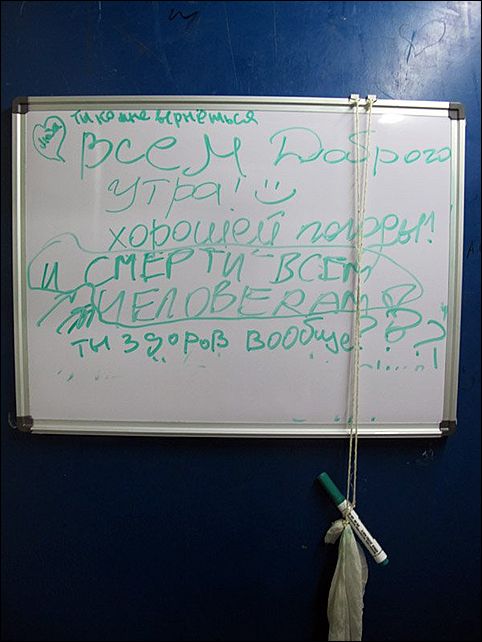 ти ко мне вернёться
Люба
Всем Доброго
утра!
хорошей погоды!
И СМЕРТИ ВСЕМ
ЧЕЛОВЕКАМ
ты здоров вообще???!